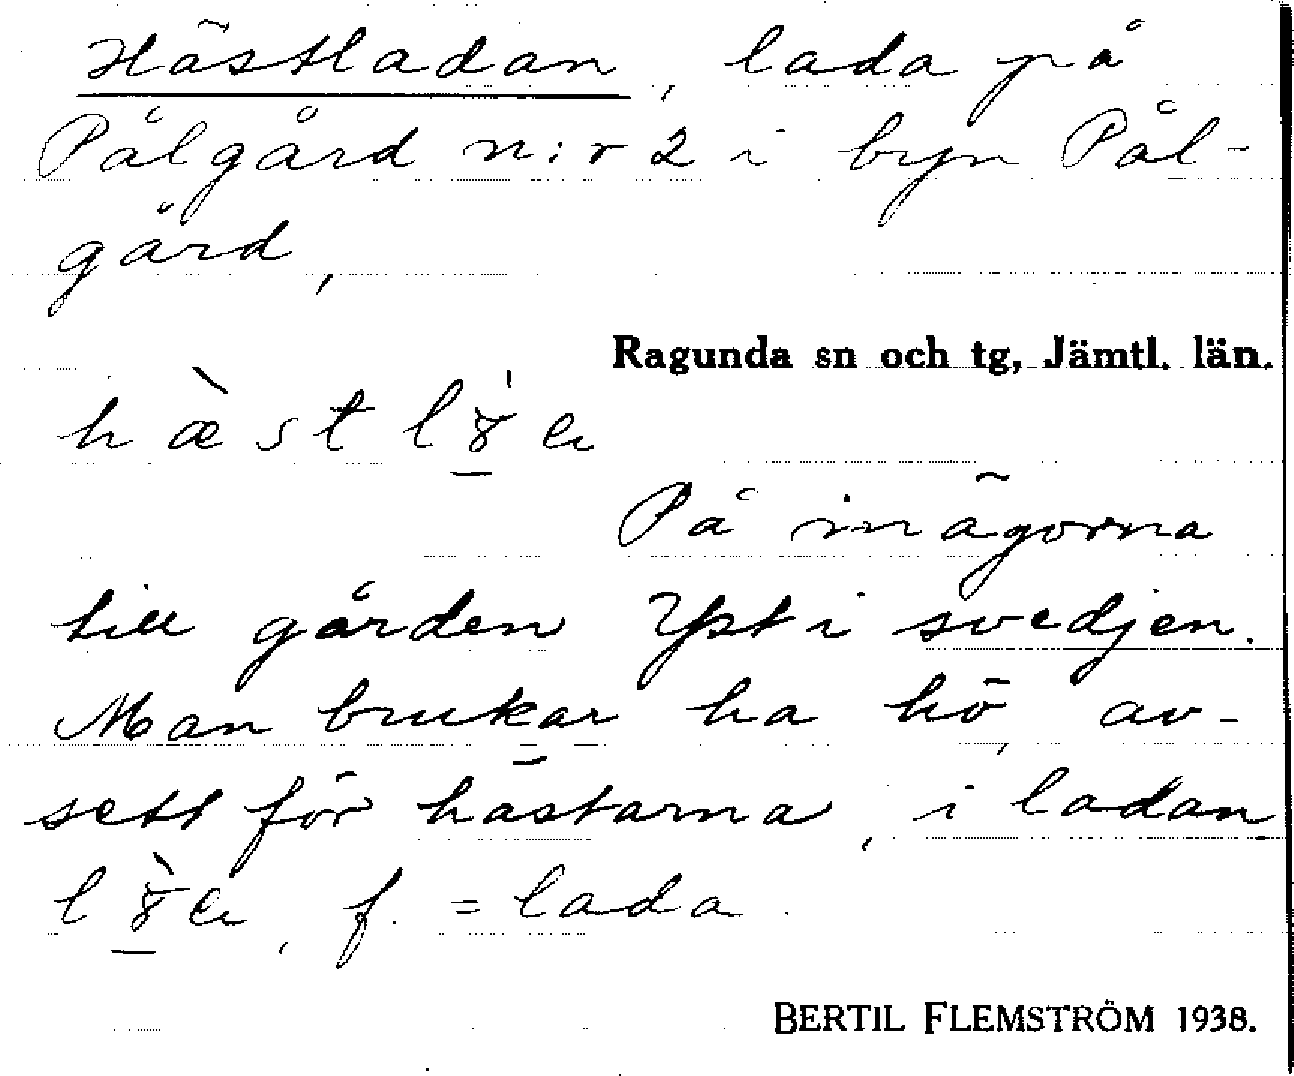 Hästladan, lada på
Pålgård n:r 2 i byn Pål-
gård,
Ragunda sn och tg, Jämtl. län.
På inägorna
till gården Yst i svedjen.
Man brukar ha hö, av-
sett för hästarna, i ladan
f. = lada.
BERTIL FLEMSTRÖM 1938.